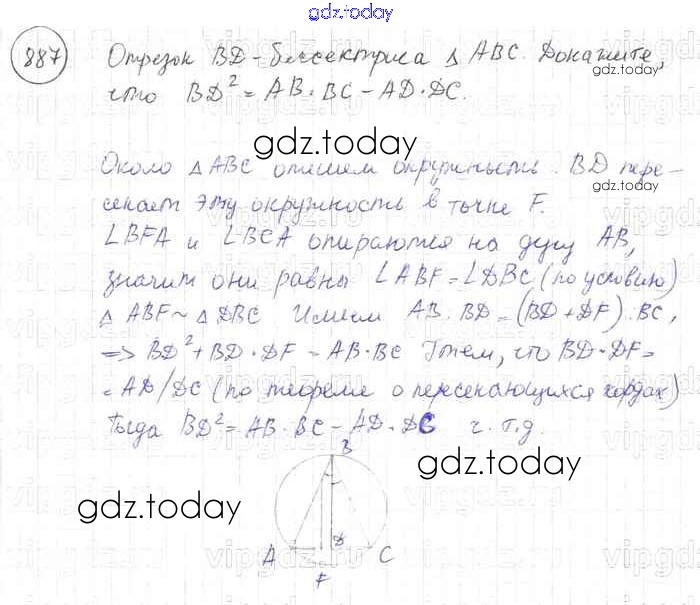 gdz.today
887 Отрезок BD - биссектриса △ ABC. Докажите,
что BD² = AB · BC - AD · DC.
gdz.today
gdz.today
Около △ ABC опишем окружность. BD пере-
gdz.today
секает эту окружность в точке F.
∠BFA и ∠BCA опираются на дугу AB,
значит они равны ∠ABF = ∠DBC (по условию)
△ ABF ~ △ DBC Имеем AB : BD = (BD + DF) : BC,
gdz.today
=> BD² + BD · DF = AB · BC Учтем, что BD · DF =
= AD/DC (по теореме о пересекающихся хордах)
gdz.today
Тогда BD² = AB · BC - AD · DC ч. т. д.
B
gdz.today
gdz.today
A C
F
gdz.today